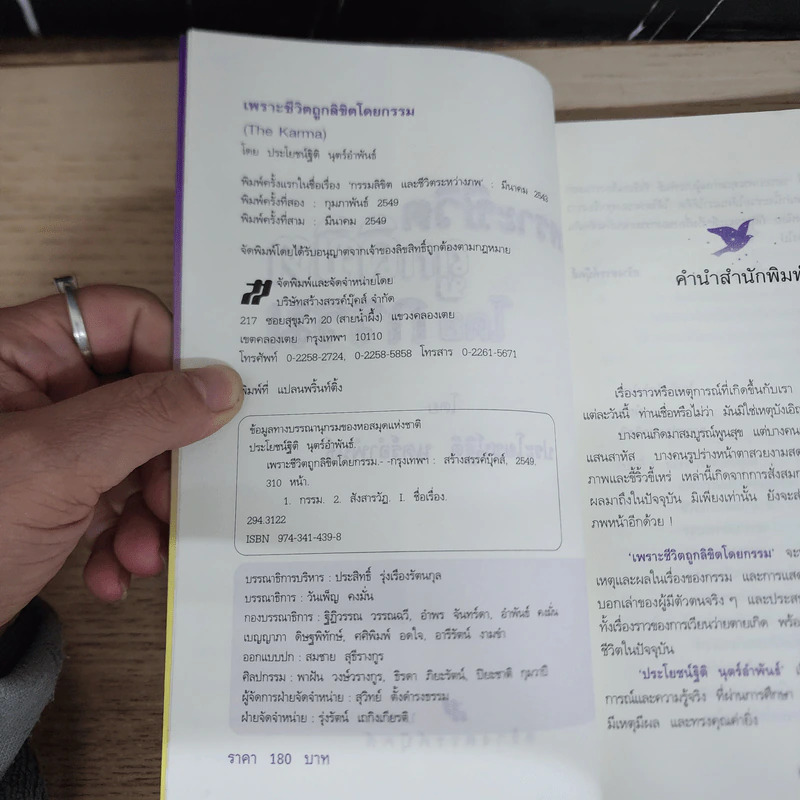 เพราะชีวิตถูกลิขิตโดยกรรม
(The Karma)
โดย ประโยชน์ฐิติ นุตร์อำพันธ์
พิมพ์ครั้งแรกในชื่อเรื่อง 'กรรมลิขิต และชีวิตระหว่างภพ' : มีนาคม 2543
พิมพ์ครั้งที่สอง : กุมภาพันธ์ 2549
พิมพ์ครั้งที่สาม : มีนาคม 2549
จัดพิมพ์โดยได้รับอนุญาตจากเจ้าของลิขสิทธิ์ถูกต้องตามกฎหมาย
จัดพิมพ์และจัดจำหน่ายโดย
บริษัทสร้างสรรค์บุ๊คส์ จำกัด
217 ซอยสุขุมวิท 20 (สายน้ำผึ้ง) แขวงคลองเตย
เขตคลองเตย กรุงเทพฯ 10110
โทรศัพท์ 0-2258-2724, 0-2258-5858 โทรสาร 0-2261-5671
พิมพ์ที่ แปลนพริ้นท์ติ้ง
ข้อมูลทางบรรณานุกรมของหอสมุดแห่งชาติ
ประโยชน์ฐิติ นุตร์อำพันธ์.
เพราะชีวิตถูกลิขิตโดยกรรม.- -กรุงเทพฯ : สร้างสรรค์บุ๊คส์, 2549.
310 หน้า.
1. กรรม. 2. สังสารวัฏ. I. ชื่อเรื่อง.
294.3122
ISBN 974-341-439-8
บรรณาธิการบริหาร : ประสิทธิ์ รุ่งเรืองรัตนกุล
บรรณาธิการ : วันเพ็ญ คงมั่น
กองบรรณาธิการ : ฐิฏิวรรณ วรรณฉวี, อำพร จันทร์ตา, อำพันธ์ คงมั่น
เบญญาภา ดิษฐพิทักษ์, ศศิพิมพ์ อดใจ, อารีรัตน์ งามขำ
ออกแบบปก : สมชาย สุธีรางกูร
ศิลปกรรม : พาฝัน วงษ์วรางกูร, ธิรดา ภิยะรัตน์, ปิยะชาติ กุมวาปี
ผู้จัดการฝ่ายจัดจำหน่าย : สุวิทย์ ตั้งดำรงธรรม
ฝ่ายจัดจำหน่าย : รุ่งรัตน์ เถกิงเกียรติ
ราคา 180 บาท
คำนำสำนักพิมพ์
เรื่องราวหรือเหตุการณ์ที่เกิดขึ้นกับเรา
แต่ละวันนี้ ท่านเชื่อหรือไม่ว่า มันมิใช่เหตุบังเอิญ
บางคนเกิดมาสมบูรณ์พูนสุข แต่บางคน
แสนสาหัส บางคนรูปร่างหน้าตาสวยงาม
ภาพและขี้ริ้วขี้เหร่ เหล่านี้เกิดจากการสั่งสม
ผลมาถึงในปัจจุบัน มิเพียงเท่านั้น ยังจะ
ภพหน้าอีกด้วย !
'เพราะชีวิตถูกลิขิตโดยกรรม' จะ
เหตุและผลในเรื่องของกรรม และการ
บอกเล่าของผู้มีตัวตนจริง ๆ และ
ทั้งเรื่องราวของการเวียนว่ายตายเกิด
ชีวิตในปัจจุบัน
'ประโยชน์ฐิติ นุตร์อำพันธ์'
การณ์และความรู้จริง ที่ผ่านการศึกษา
มีเหตุมีผล และทรงคุณค่ายิ่ง